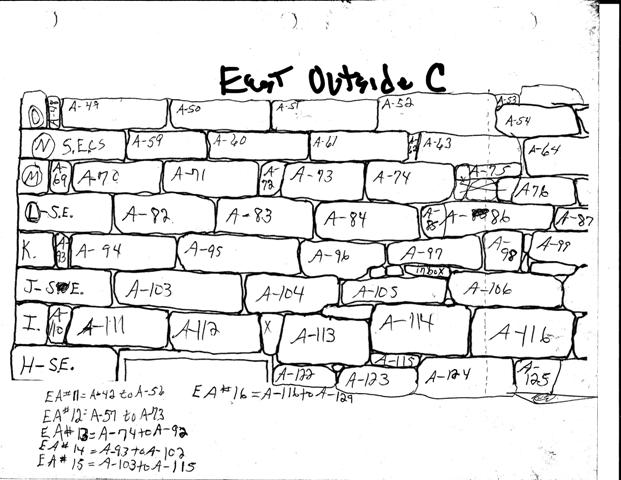 East Outside C
O A-48 A-49 A-50 A-51 A-52 A-53
A-54
N S.EGS A-59 A-60 A-61 A-62 A-63 A-64
M A-69 A-70 A-71 A-72 A-73 A-74 A-75
A76
L-S.E. A-82 A-83 A-84 A-85 A-86 A-87
K. A-93 A-94 A-95 A-96 A-97 A-98 A-99
in box
J-S.E. A-103 A-104 A-105 A-106
I. A-110 A-111 A-112 X A-113 A-114 A-116
A-115
H-S.E. A-122 A-123 A-124 A-125
EA#11=A-42 to A-56 EA#16=A-116 to A-129
EA#12=A-57 to A-73
EA#13=A-74 to A-92
EA#14=A-93 to A-102
EA#15=A-103 to A-115